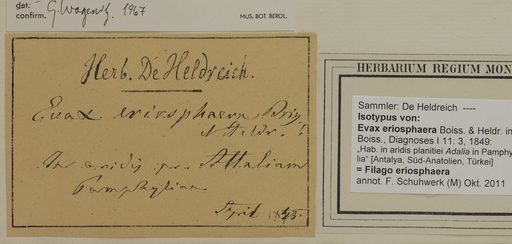 det.
confirm. G. Wagenitz 1967
MUS. BOT. BEROL.
Herb. De Heldreich.
Evax eriosphaera Boiss
& Heldr. !
In aridis pr. Attaliam
Pamphyliae
April 1845.
HERBARIUM REGIUM MON
Sammler: De Heldreich ----
Isotypus von:
Evax eriosphaera Boiss. & Heldr. in
Boiss., Diagnoses I 11: 3, 1849:
„Hab. in aridis planitiei Adalia in Pamphy
lia“ [Antalya, Süd-Anatolien, Türkei]
= Filago eriosphaera
annot. F. Schuhwerk (M) Okt. 2011